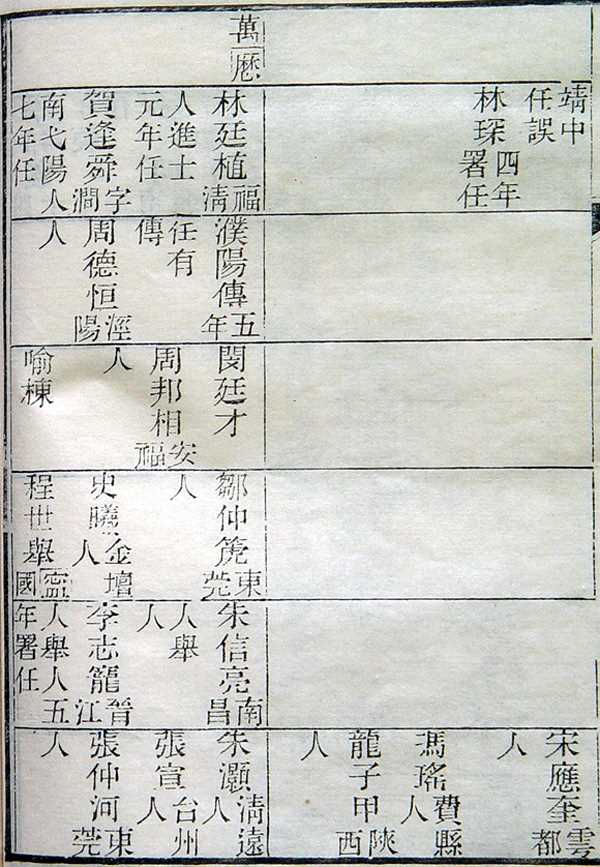 萬厯
靖中
任誤
林琛四年署任
林廷植福清
人進士
元年任
賀逢舜字澗
南弋陽人
七年任
濮陽傳五年
任有
傳
周德恒涇陽
人
閔廷才
周邦相安福
人
喻棟
鄒仲筦東莞
人
史曦金壇人
程世舉寧國
朱信亮南昌
人舉
人
李志籠晉江
人舉人五
年署任
宋應奎雲都
人
馮瑤費縣人
龍子甲陝西
人
朱灝清遠人
張宣台州人
張仲河東莞
人